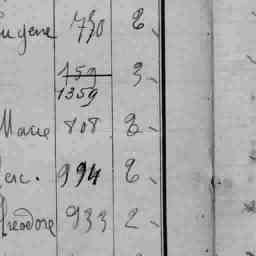 Eugene 750 2
159 3
1359
Marie 808 2
erc. 994 2
Theodore 933 2